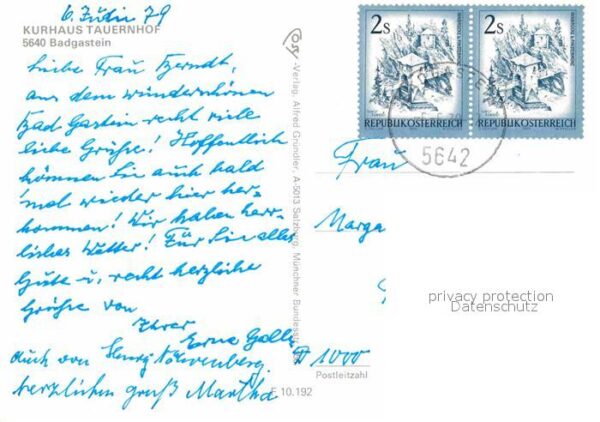 6. Juli 79
KURHAUS TAUERNHOF
5640 Badgastein
Liebe Frau Berndt,
aus dem wunderschönen
Bad Gastein recht viele
liebe Grüße! Hoffentlich
können Sie auch bald
'mal wieder hier her-
kommen! Wir haben herr-
liches Wetter! Für Sie alles
Gute u. recht herzliche
Grüße von
Ihrer
Erna
auch von
herzlichen Gruß Martha
Verlag Alfred Gründler, A-5013 Salzburg, Münchner Bundesstr.
F 10.192
2s
REPUBLIK ÖSTERREICH
2s
REPUBLIK ÖSTERREICH
5642
Frau
Marga
privacy protection
Datenschutz
D 1000
Postleitzahl